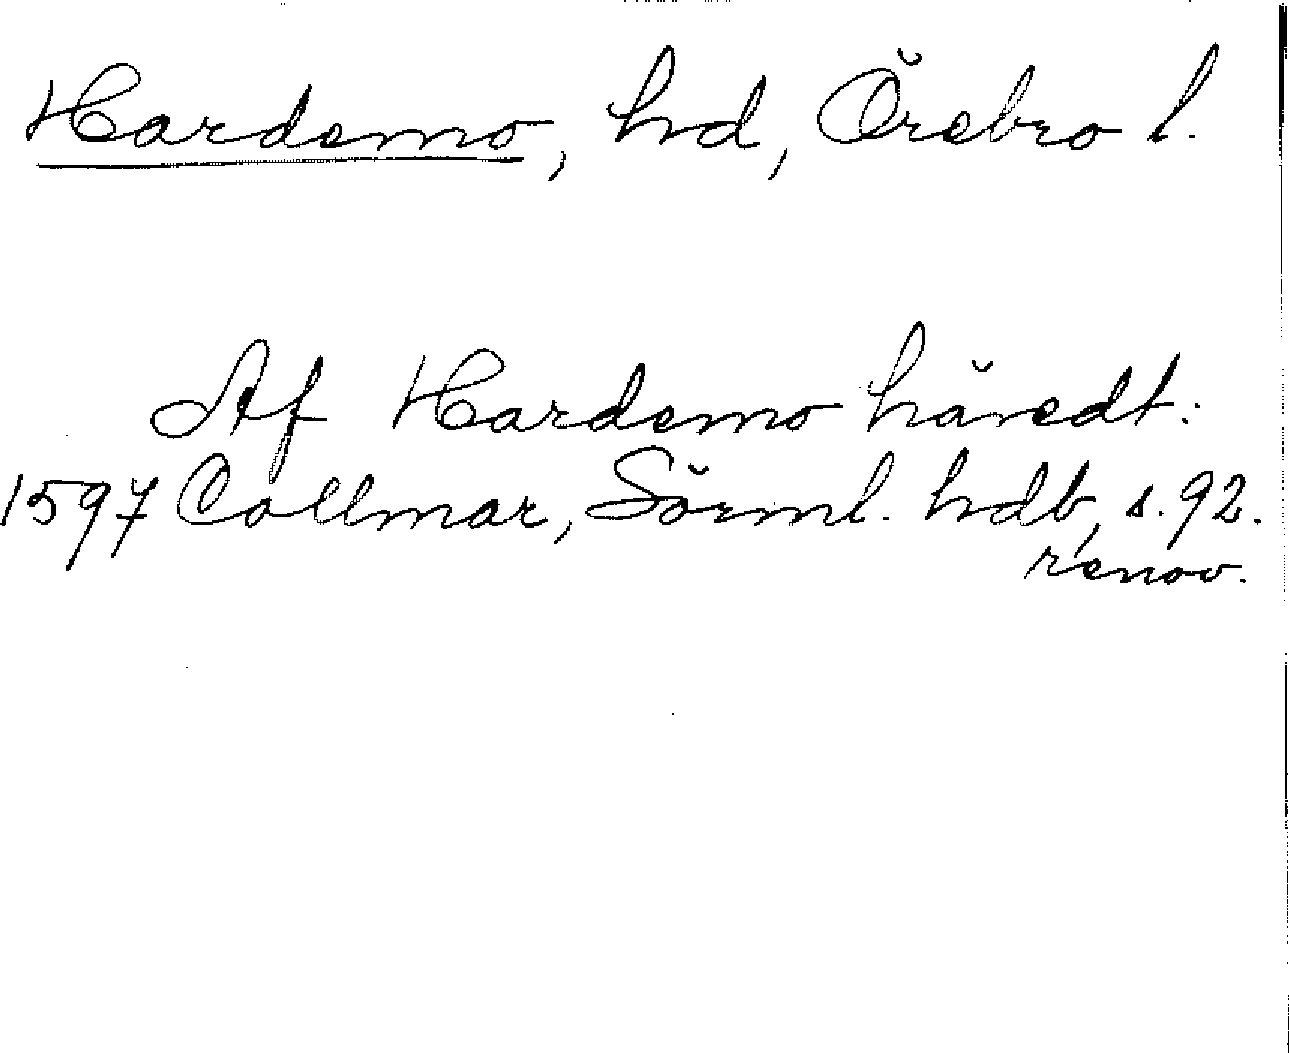 Hardemo, hd, Örebro l.
Af Hardemo häredt:
1597 Collmar, Sörml. hdb, s. 92.
renov.